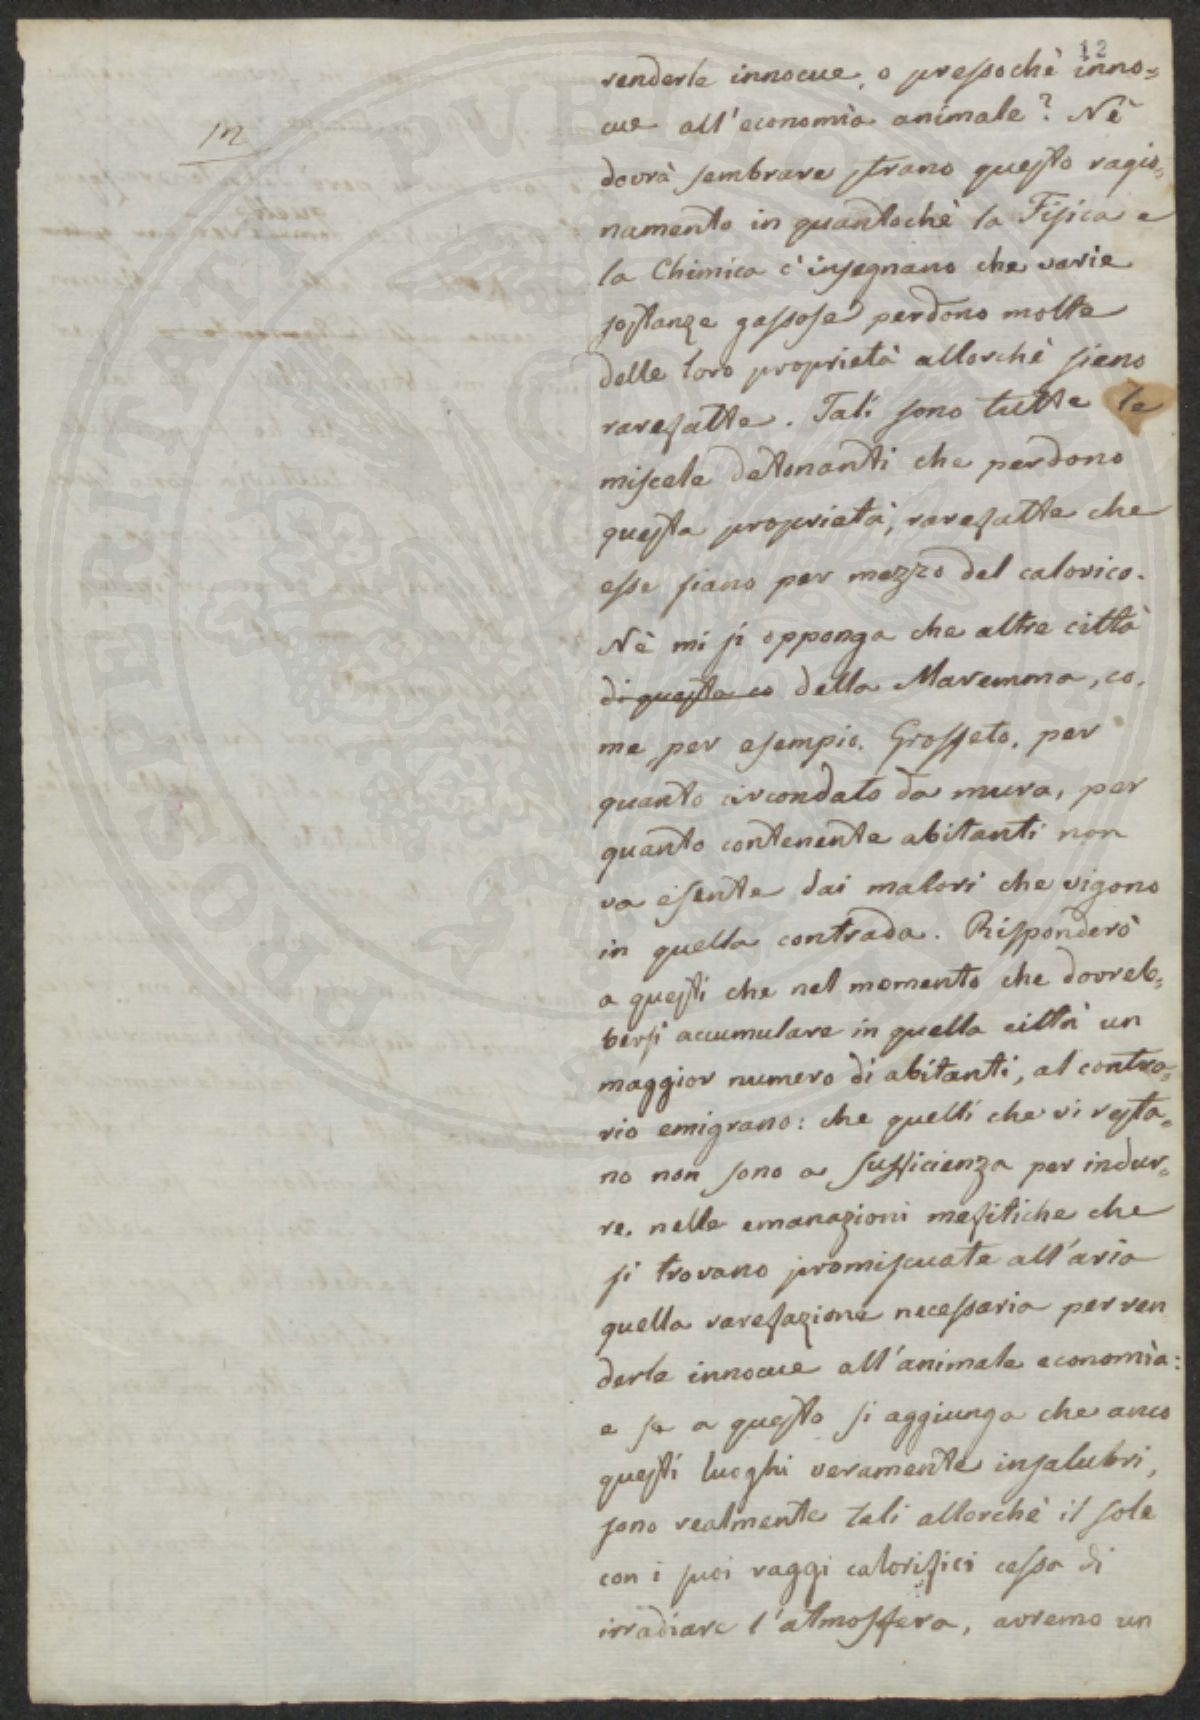 12
m
renderle innocue, o pressochè inno=
cue all'economia animale? Nè
dovrà sembrare strano questo ragio=
namento in quantochè la Fisica e
la Chimica c'insegnano che varie
sostanze gassose perdono molte
delle loro proprietà allorchè sieno
rarefatte. Tali sono tutte le
miscele detonanti che perdono
questa proprietà, rarefatte che
esse siano per mezzo del calorico.
Nè mi si opponga che altre città
di queste co della Maremma, co,
me, per esempio, Grosseto, per
quanto circondato da mura, per
quanto contenente abitanti non
va esente dai malori che vigono
in quella contrada. Risponderò
a questi che nel momento che dovreb=
bersi accumulare in quella città un
maggior numero di abitanti, al contra=
rio emigrano: che quelli che vi resta=
no non sono a sufficienza per indur=
re, nelle emanazioni mefitiche che
si trovano promiscuate all'aria
quella rarefazione necessaria per ren
derle innocue all'animale economia:
e se a questo si aggiunga che anco
questi luoghi veramente insalubri,
sono realmente tali allorchè il sole
con i suoi raggi calorifici cessa di
irradiare l'atmosfera, avremo un
POSPERITATI PVBLICAE